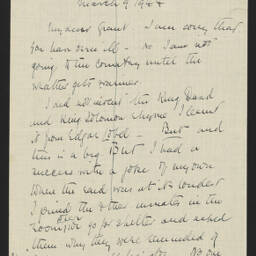 March 9 1944
My dear Grant - I am sorry that
you have been ill - No I am not
going to the country until the
weather gets warmer
I did not invent the King David
and King Solomon rhyme I learnt
it from Edgar Lobel - But and
this is a big But I had a
success with a joke of my own
When the raid was at its loudest
I found the three inmates in the
room for shelter and asked
them why they were reminded of